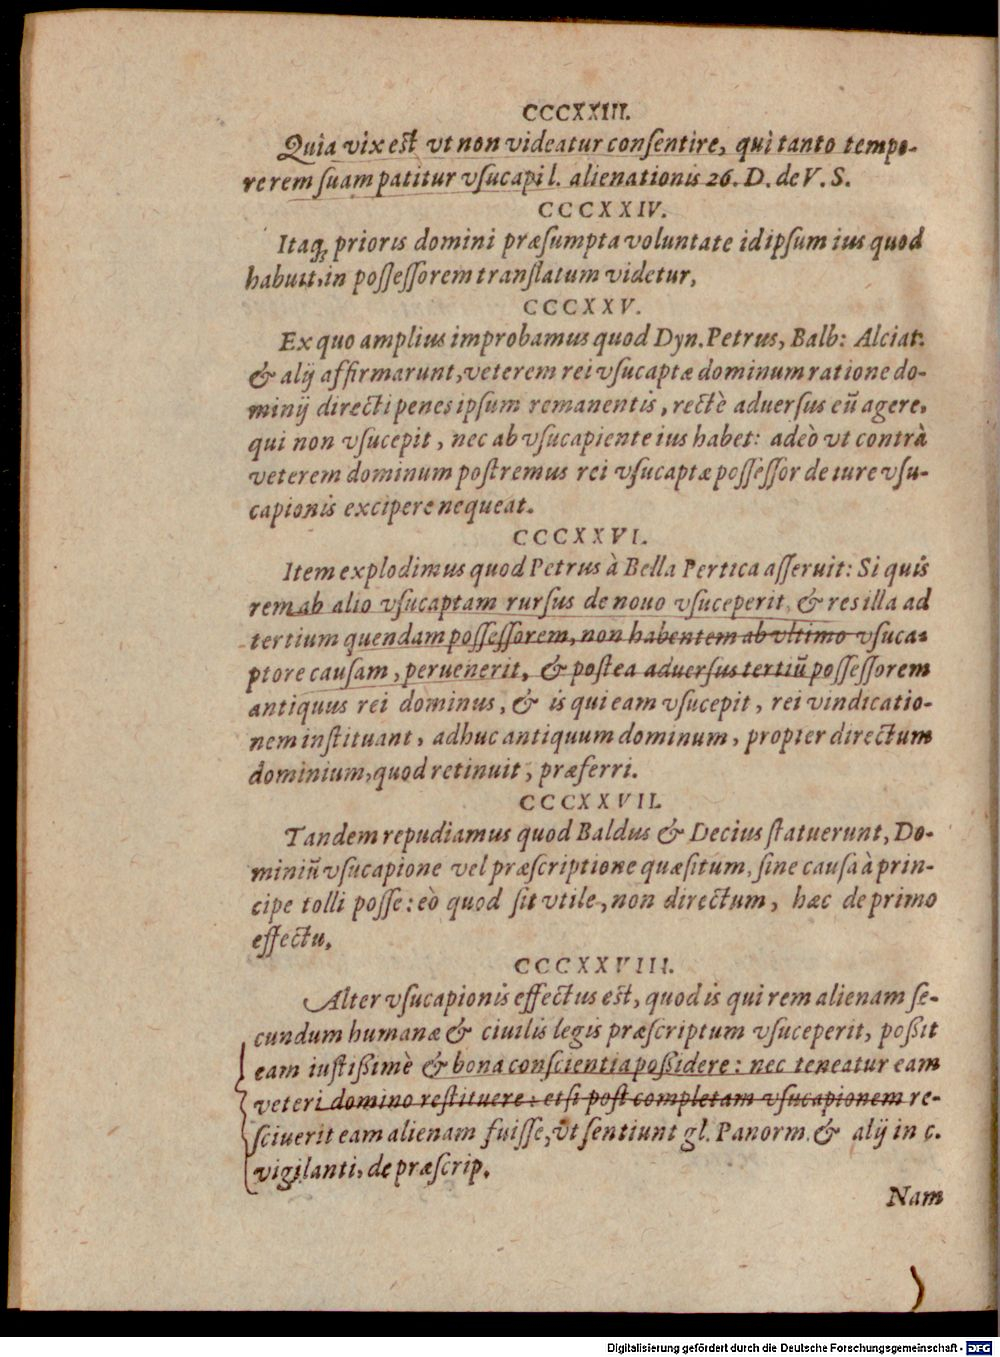 CCCXXIII.
Quia vix est vt non videatur consentire, qui tanto tempo-
re rem suam patitur vsucapi l. alienationis 26. D. de V. S.
CCCXXIV.
Itaq; prioris domini præsumpta voluntate id ipsum ius quod
habuit, in possessorem translatum videtur,
CCCXXV.
Ex quo amplius improbamus quod Dyn. Petrus, Balb: Alciat:
& alij affirmarunt, veterem rei vsucaptæ dominum ratione do-
minij directi penes ipsum remanentis, rectè aduersus eũ agere,
qui non vsucepit, nec ab vsucapiente ius habet: adeò vt contrà
veterem dominum postremus rei vsucaptæ possessor de iure vsu-
capionis excipere nequeat.
CCCXXVI.
Item explodimus quod Petrus à Bella Pertica asseruit: Si quis
rem ab alio vsucaptam rursus de nouo vsuceperit, & res illa ad
tertium quendam possessorem, non habentem ab vltimo vsuca-
ptore causam, peruenerit, & postea aduersus tertiũ possessorem
antiquus rei dominus, & is qui eam vsucepit, rei vindicatio-
nem instituant, adhuc antiquum dominum, propter directum
dominium, quod retinuit, præferri.
CCCXXVII.
Tandem repudiamus quod Baldus & Decius statuerunt, Do-
miniũ vsucapione vel præscriptione quæsitum, sine causa à prin-
cipe tolli posse: eò quod sit vtile, non directum, hæc de primo
effectu,
CCCXXVIII.
Alter vsucapionis effectus est, quod is qui rem alienam se-
cundum humanæ & ciuilis legis præscriptum vsuceperit, poßit
eam iustißimè & bona conscientia poßidere: nec teneatur eam
veteri domino restituere: etsi post completam vsucapionem re-
sciuerit eam alienam fuisse, vt sentiunt gl. Panorm. & alij in c.
vigilanti, de præscrip.
Nam
Digitalisierung gefördert durch die Deutsche Forschungsgemeinschaft - DFG